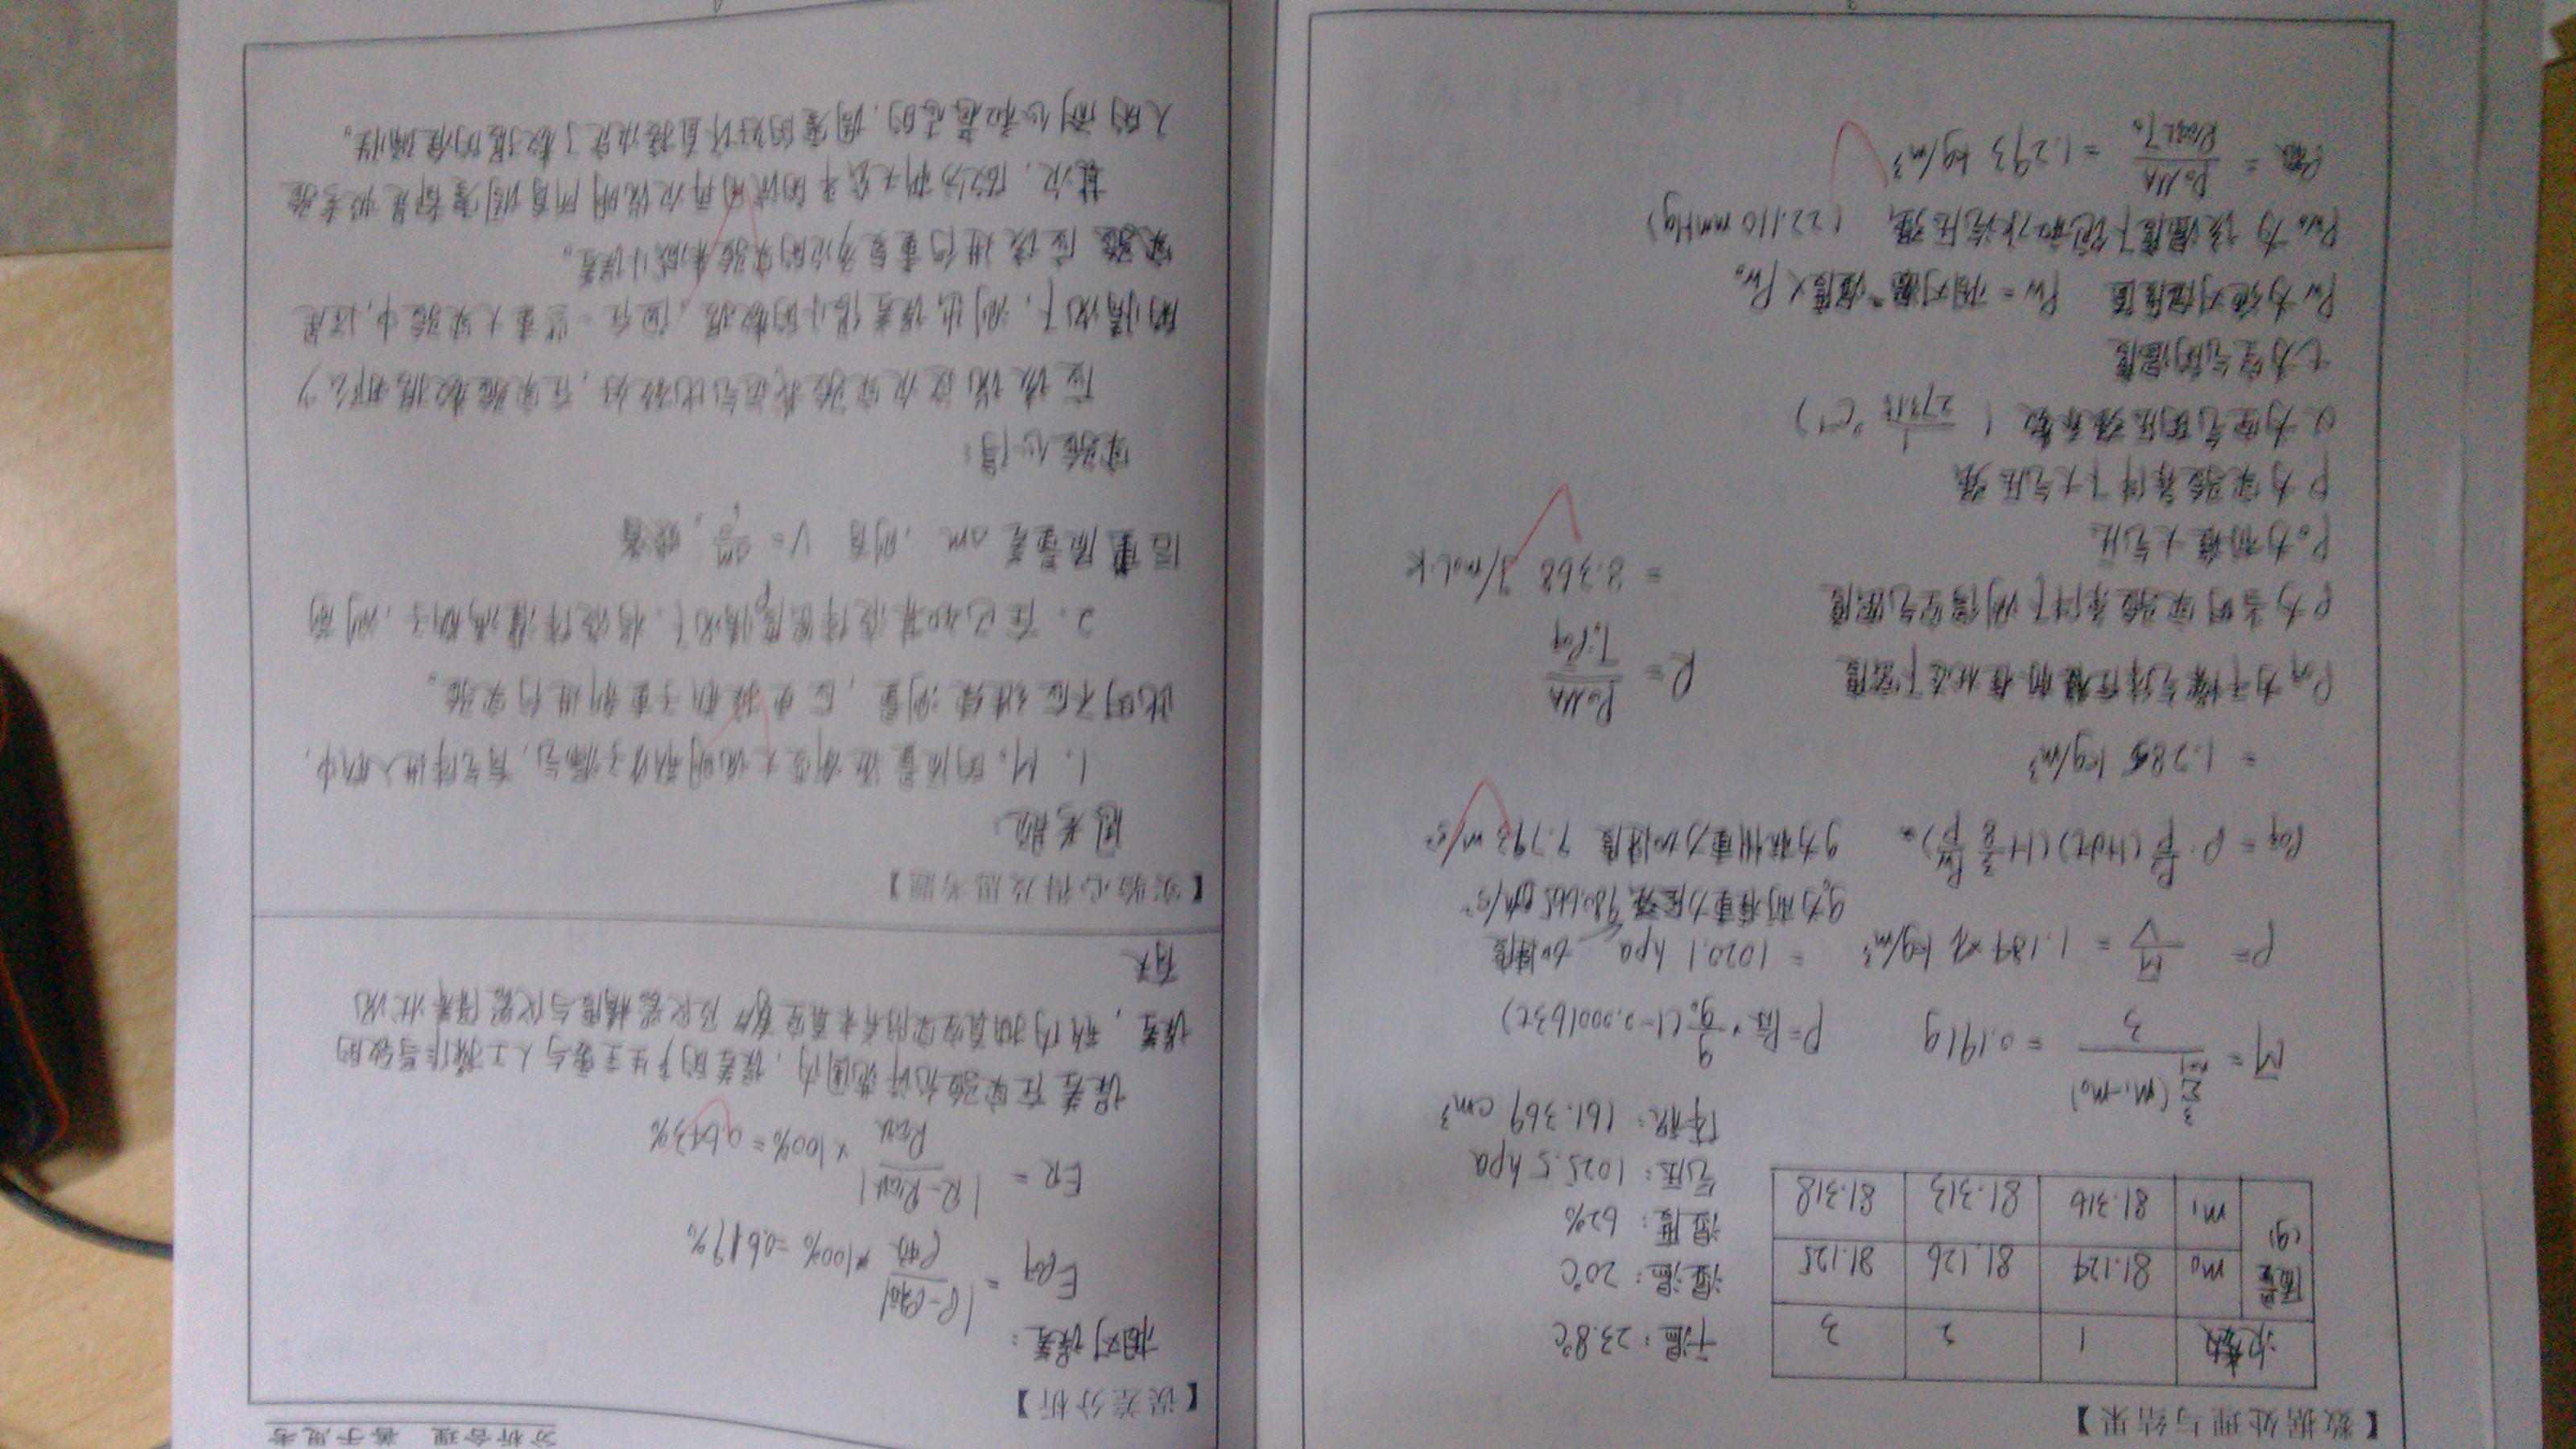 【数据处理与结果】
次数 1 2 3
质量(g) m₀ 81.124 81.126 81.125
m₁ 81.316 81.313 81.318
干温：23.8℃
湿温：20℃
湿度：62%
气压：1025.5 hpa
体积：161.369 cm³
M̄ = Σ(m₁-m₀) / 3 = 0.191g
ρ = M̄/V = 1.184 kg/m³
= 1.285 kg/m³
P = P × g/g₀ (1-0.000163t)
= 1020.1 hpa
加速度
g₀为标准重力 980.665 cm/s²
g为杭州重力加速度 9.793 m/s²
为干燥气体在标准状态下密度
ρ为当时实验条件下测得空气密度
P₀为标准大气压
P为实验条件下大气压强
α为空气的压强系数 ( 1/273.15 ℃⁻¹)
t为空气的温度
Pw为绝对湿度值 Pw = 相对湿度×Pw₀
Pw₀为该温度下饱和水汽压强 (22.110 mmHg)
= P₀μA / T₀ = 1.293 kg/m³
R = P₀μA / T₀ρ
= 8.368 J/mol·k
分析合理 善于思考
【误差分析】
相对误差：
×100% = 0.619%
ER = |R-R理论| / R理论 ×100% = 0.643%
误差在实验允许范围内，误差的产生主要与人工操作导致的
误差，瓶内抽真空实际并未真空 及仪器精度与仪器保养状况
有关
【实验心得及思考题】
思考题：
1. M₀的质量逐渐变大说明瓶子漏气，有气体进入瓶中，
此时不应继续测量，应更换瓶子重新进行实验。
2. 在已知某液体密度ρ情况下，将液体灌满瓶子，测前
后质量差Δm，则有 V = Δm/ρ，
实验心得：
应该说这次实验我运气比较好，在实验数据那么少
的情况下，测出误差很小的数据，但在一些重大实验中，还是
应该进行重复多次的实验来减小误差。
其次，做分析天平的试用再次说明所有调零都是极考验
人的耐心和意志的，调零的好坏直接决定了数据的准确性。
3
4